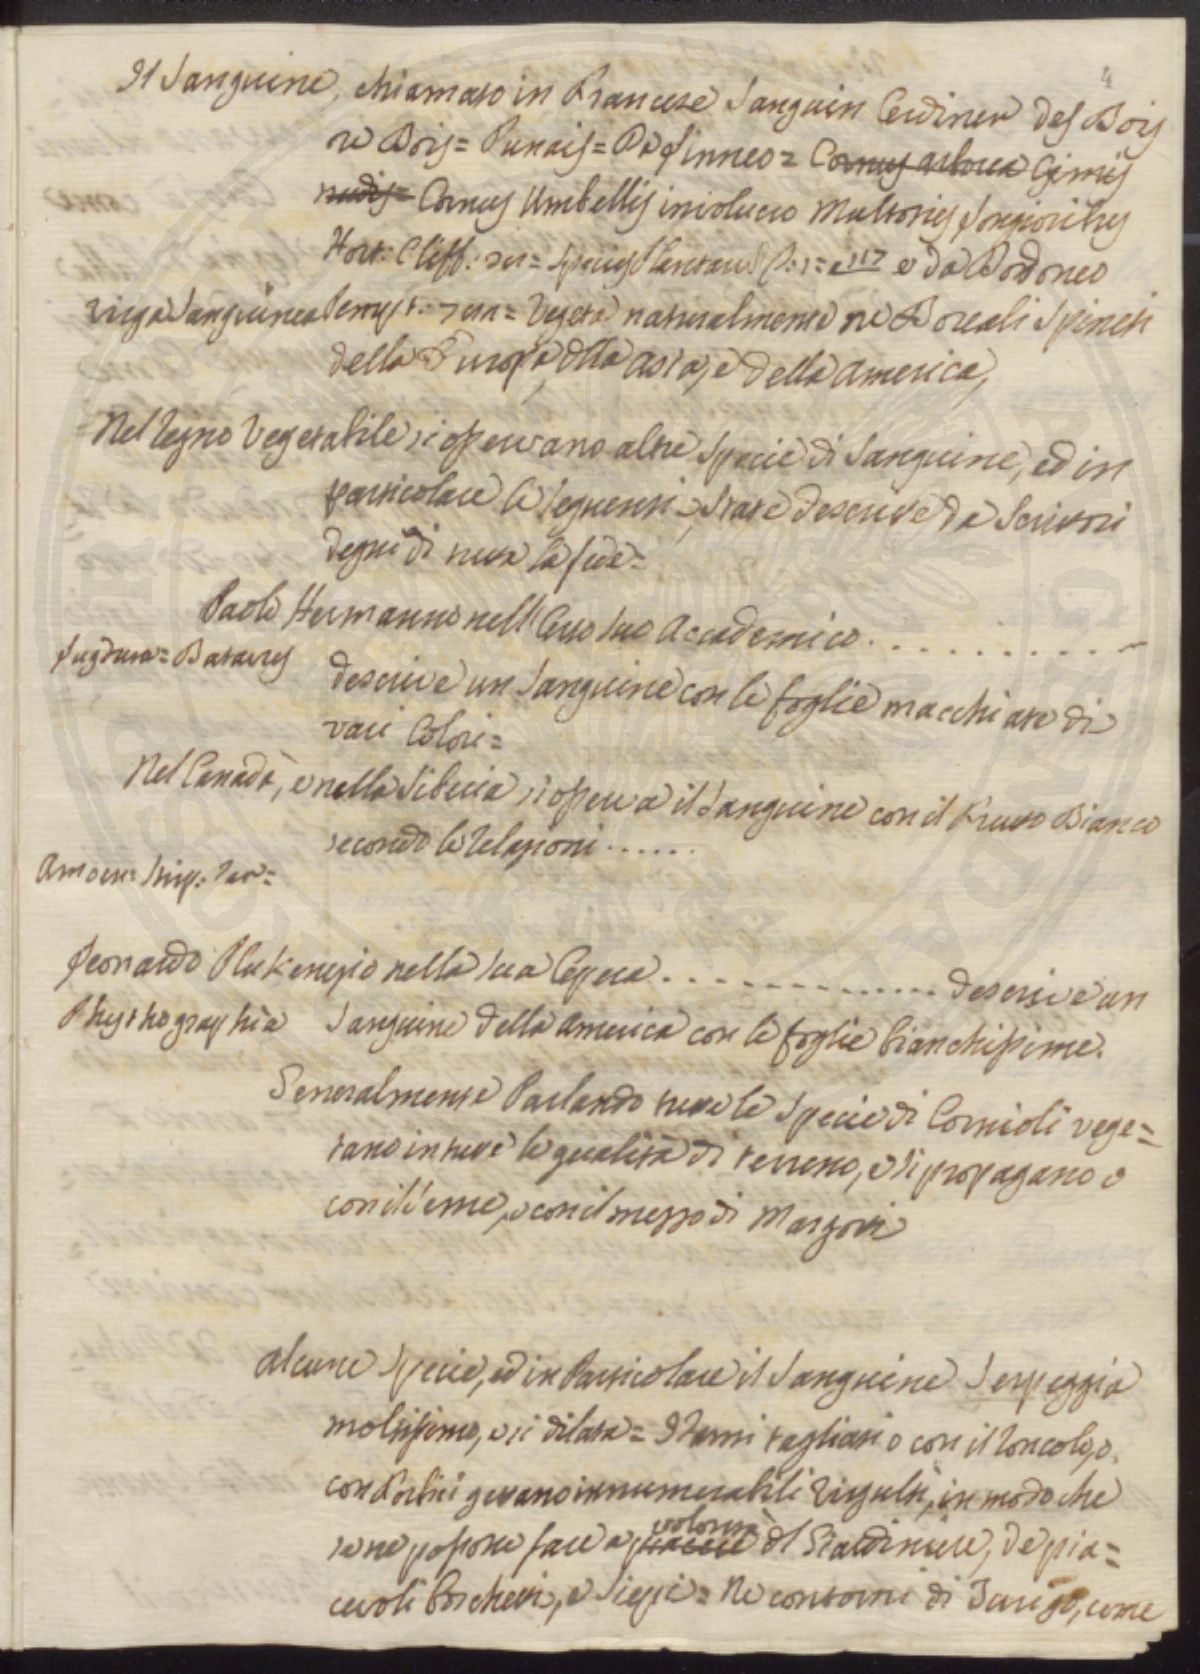 4
Il Sanguine, chiamato in Francese Sanguin Cordinier des Bois
ou Bois = Punais = Da Linneo = Cornus arborea Cymis
nudis = Cornus Umbellis involucro Multoties Longioribus
Hort: Cliff: = Species Plantarum P: 1: = 117 e da Dodoneo
Virga Sanguinea Pempt: = Vegeta naturalmente ne Boreali Spineti
della Europa, della Asia, e della America,
Nel Regno Vegetabile si osservano altre Specie di Sanguine, ed in
particolare le seguenti, state descritte da Scrittori
degni di tutta la fede =
Paolo Hermanno nell' Orto suo Accademico . . . . . . . . . .
Lugduno = Batavus
descrive un Sanguine con le foglie macchiate di
varj Colori =
Nel Canadà, e nella Siberia si osserva il Sanguine con il Frutto Bianco
secondo le Relazioni . . . . . .
Amoen: Stirp: =
Leonardo Plukenezio nella sua Opera . . . . . . . . . . . . . . descrive un
Phythographia Sanguine della America con le foglie bianchissime.
Generalmente Parlando tutte le Specie di Cornioli vege=
tano in tutte le qualità di terreno, e si propagano o
con il seme, o con il mezzo di Margotti
Alcune Specie, ed in Particolare il Sanguine Serpeggia
moltissimo, e si dilata = I Rami tagliati o con il Roncolo, o
con Forbici gettano innumerabili Virgulti, in modo che
se ne possono fare a piacere volontà del Giardiniere, de pia=
cevoli boschetti, e Siepi = Ne contorni di Parigi, come